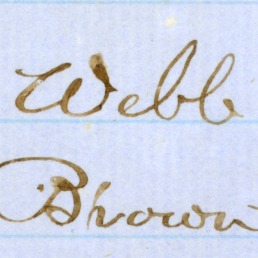 Webb
Brown